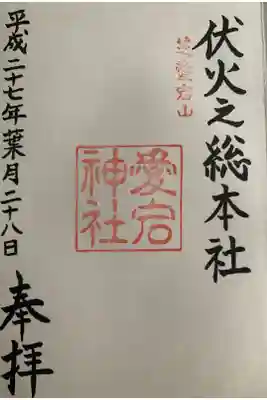 伏火之総本社
愛宕山
愛宕
神社
奉拝
平成二十七年葉月二十八日